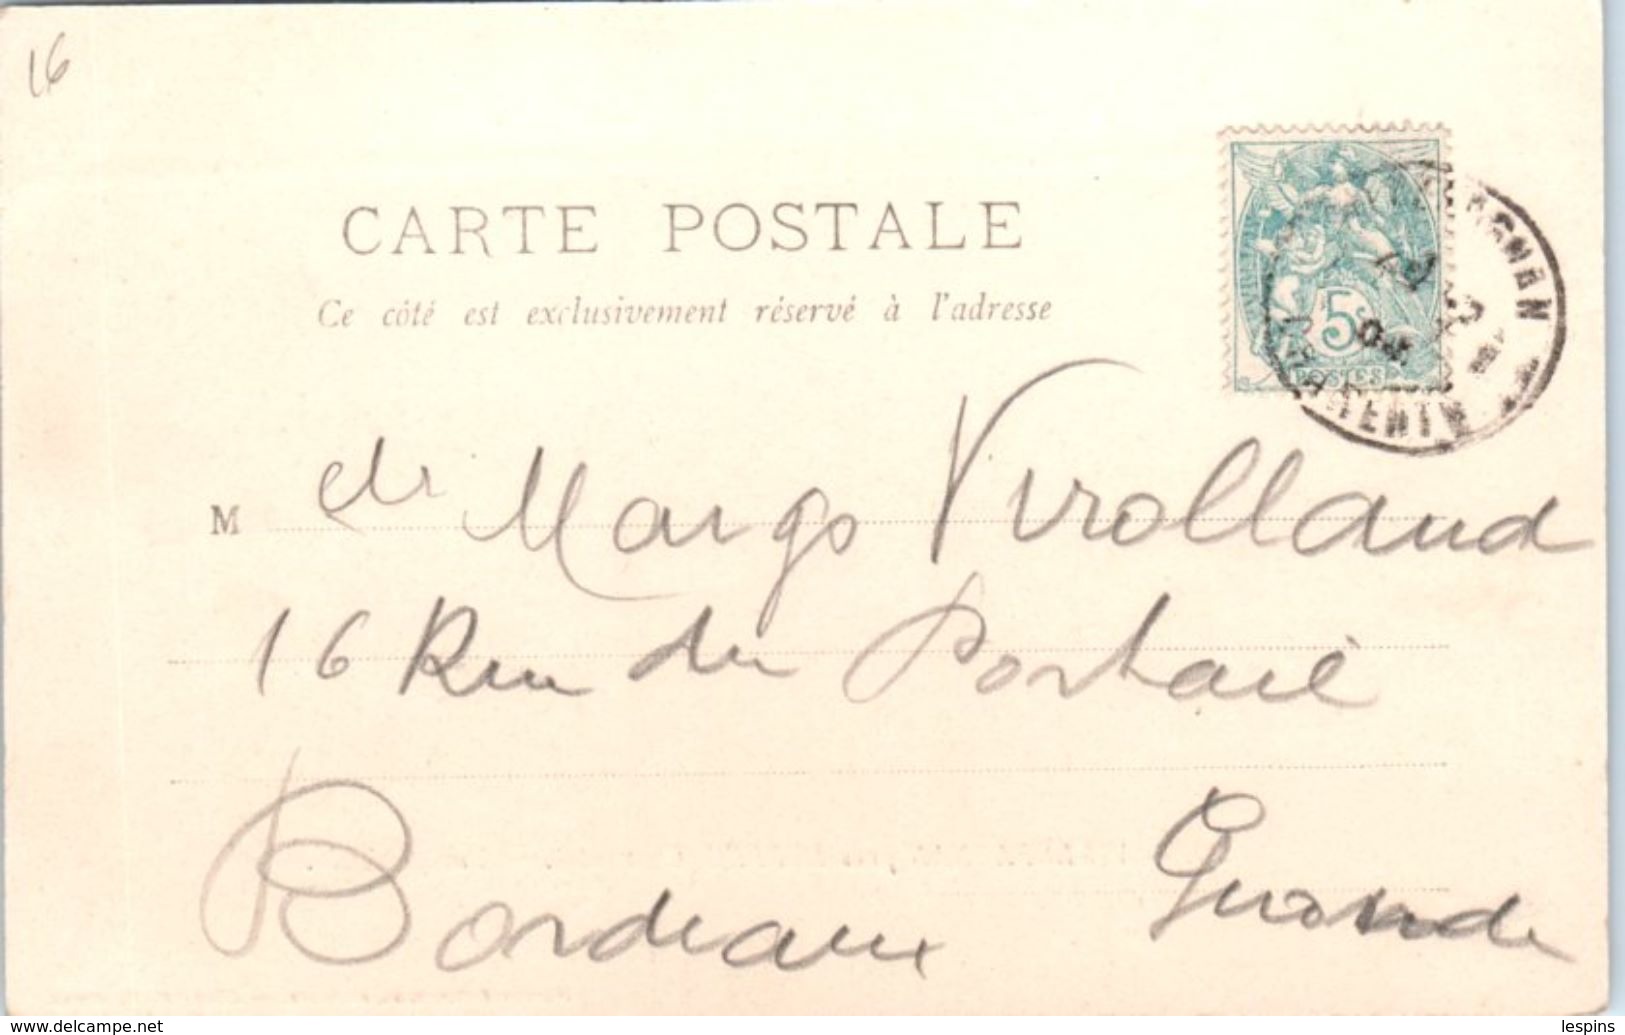 16
CARTE POSTALE
Ce côté est exclusivement réservé à l'adresse
5c
POSTES
04
M elle Margo Virolland
16 Rue du Portail
Bordeaux Gironde
www.delcampe.net
lespins